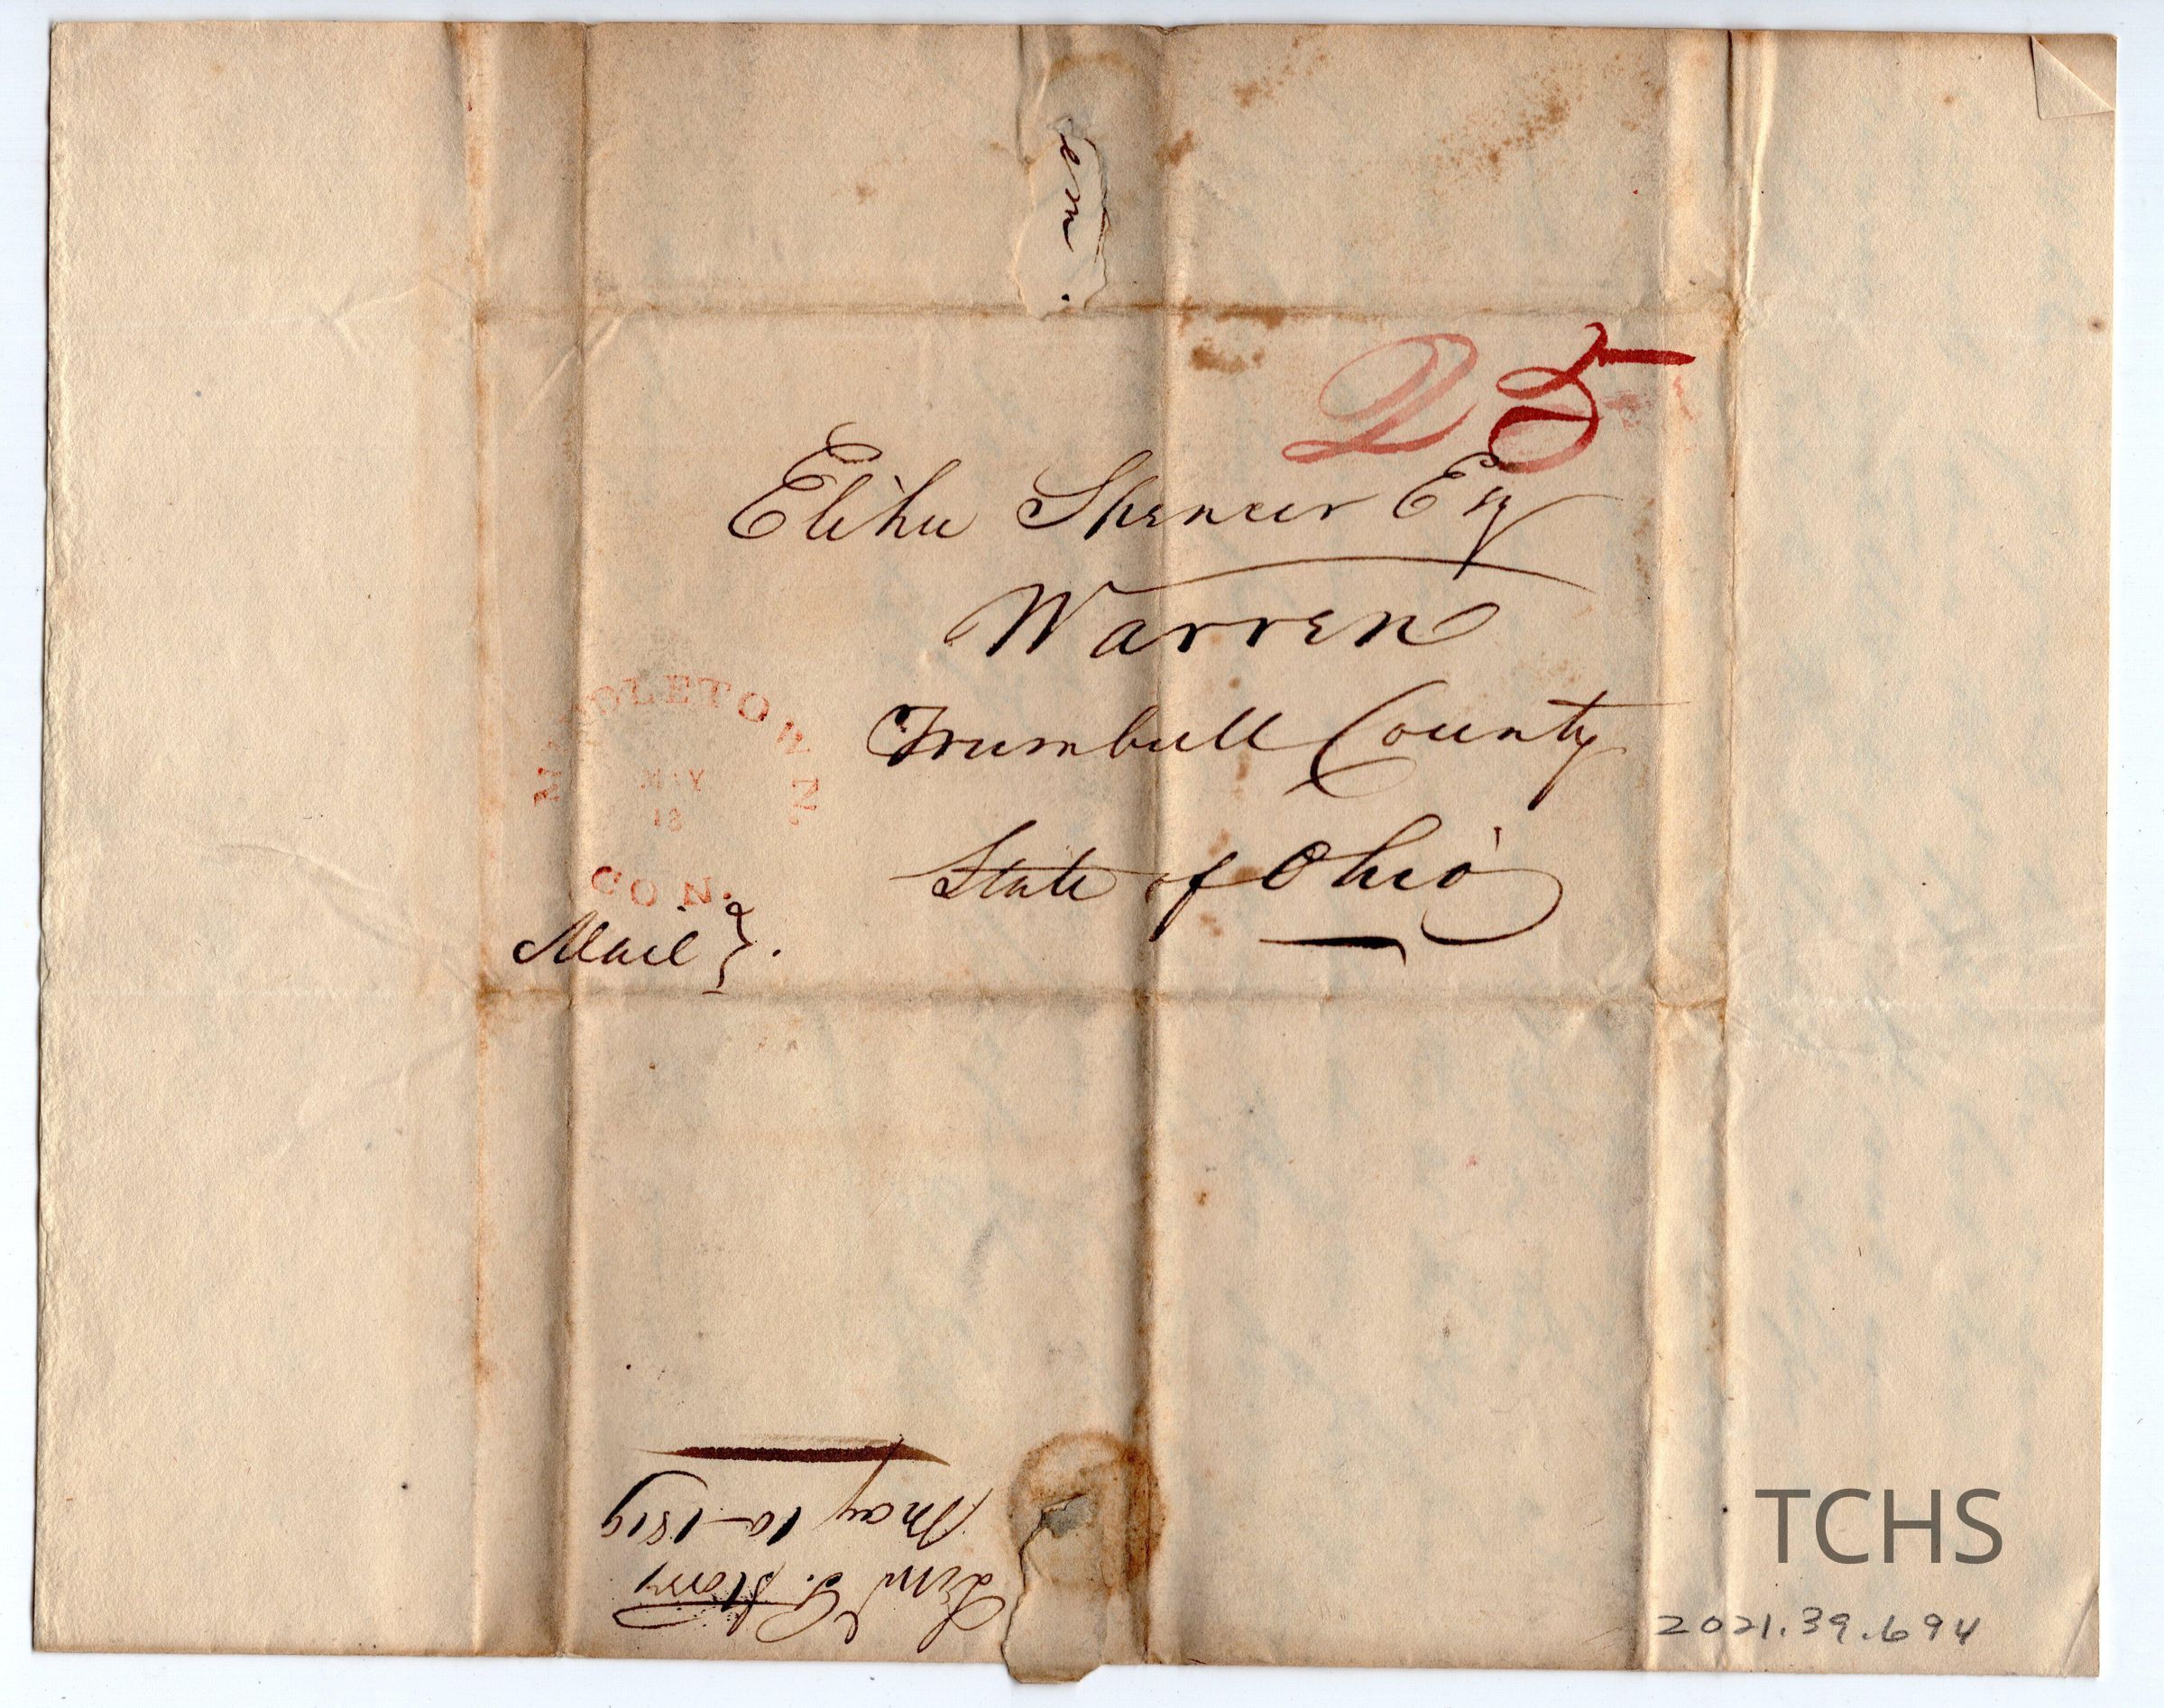 em.
25
Elihu Spencer Esq
Warren
Trumbull County
State of Ohio
MIDDLETOWN.
MAY
18
CON.
Mail }.
May 10-1819
TCHS
2021.39.694